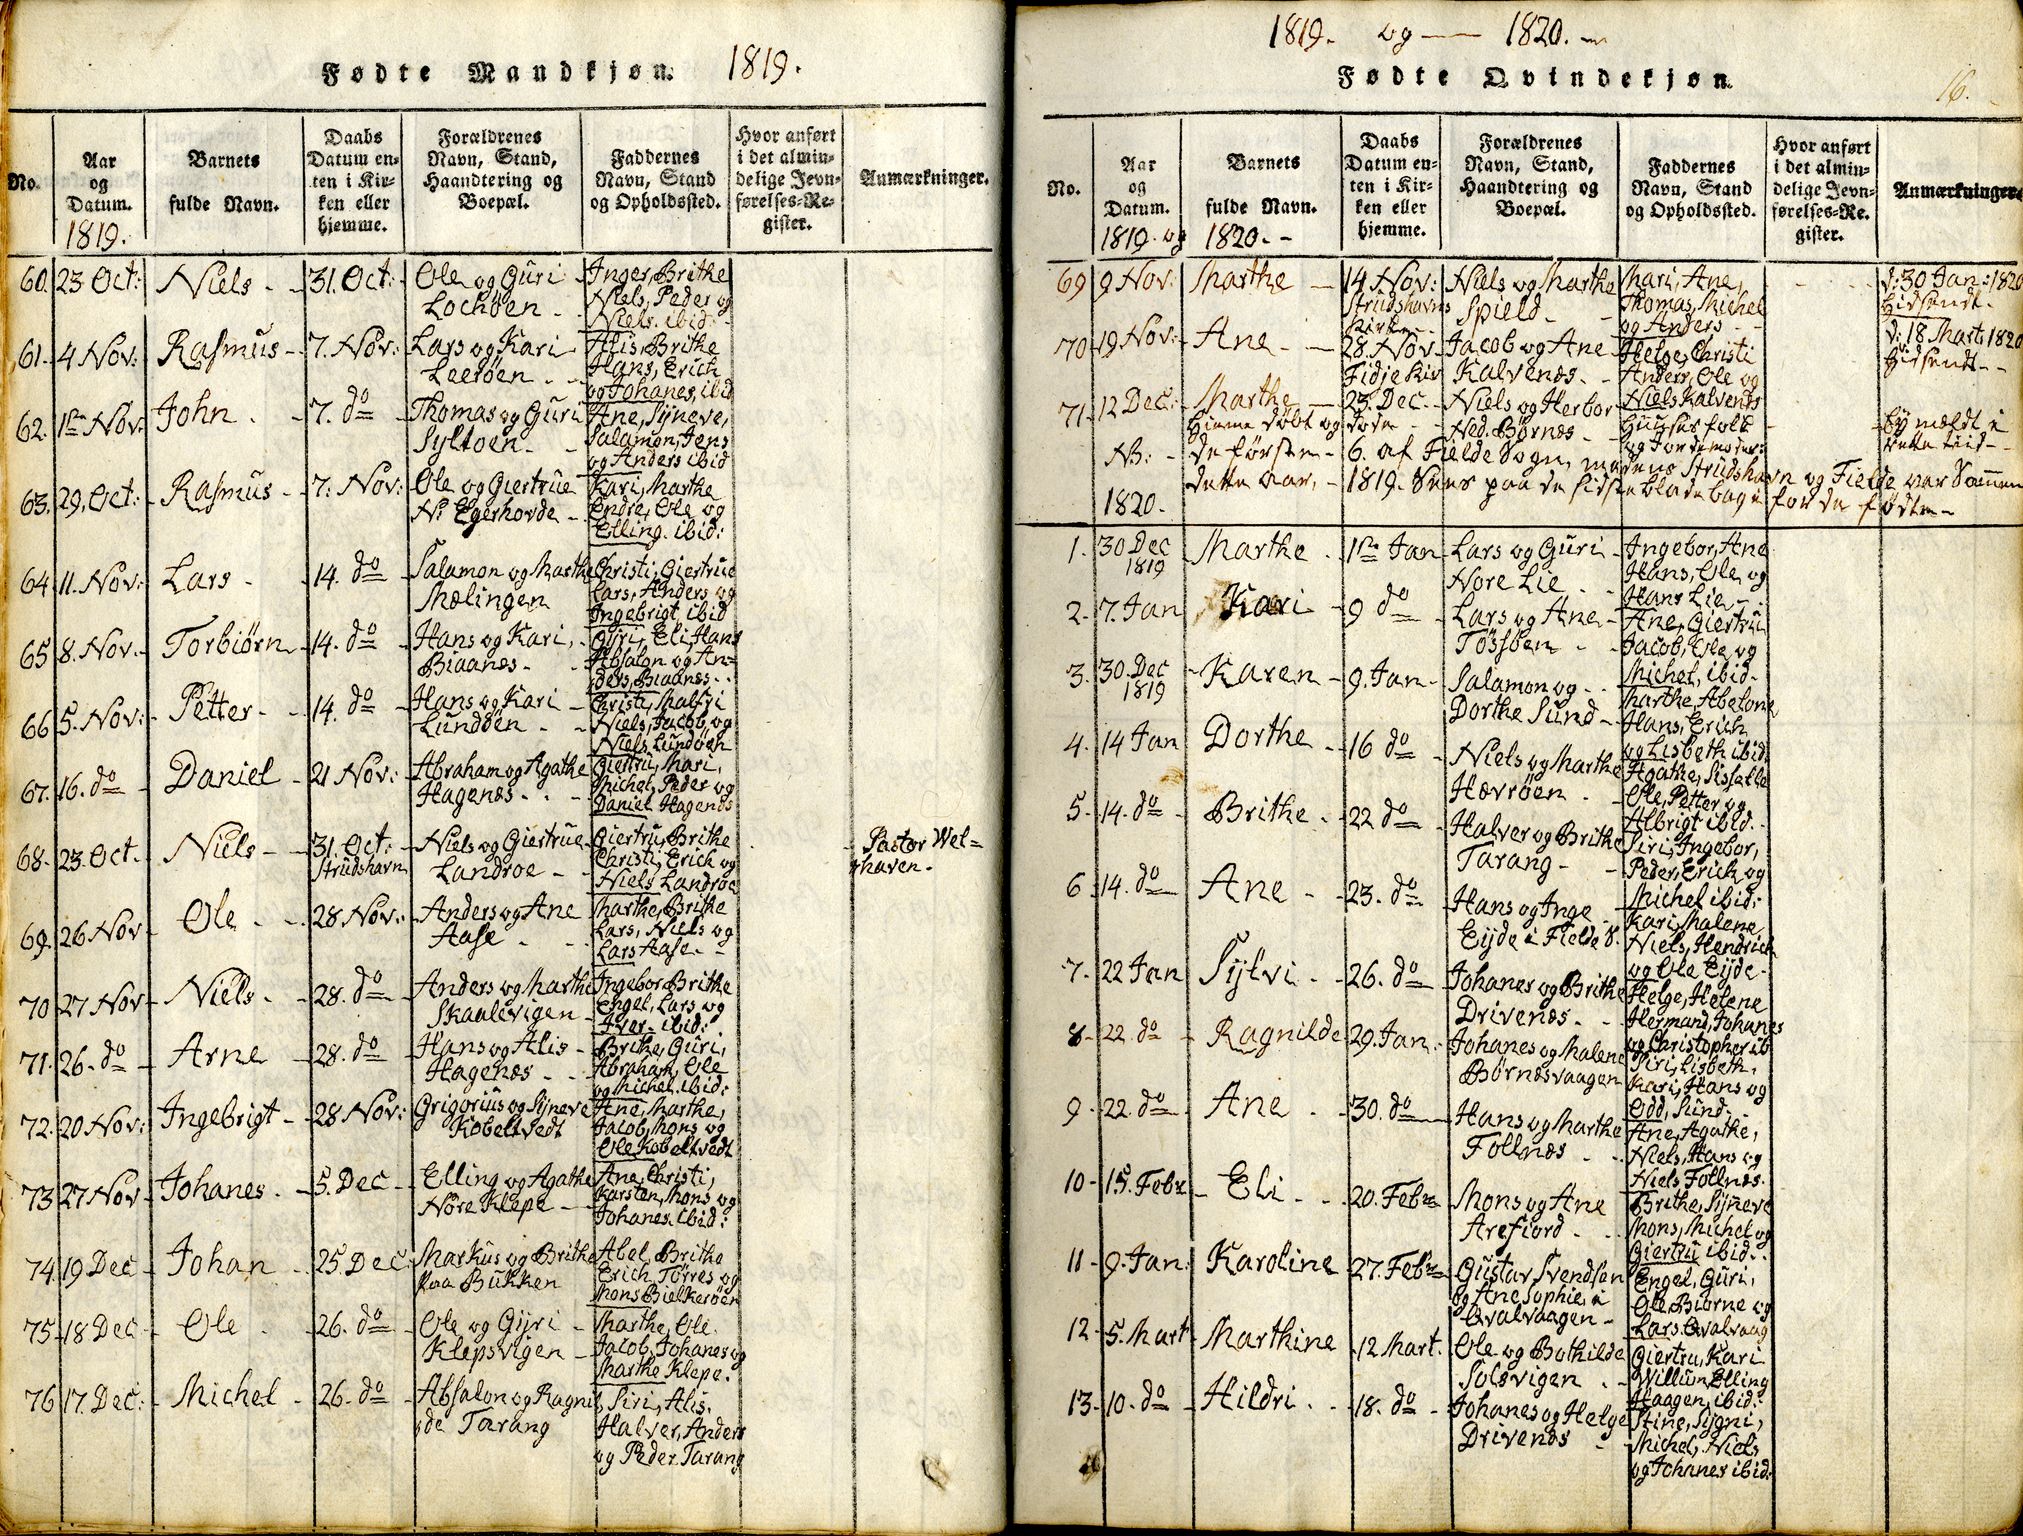 1819.
Fødte Mandkjøn.
No.
Aar
og
Datum.
1819.
Barnets
fulde Navn.
Daabs
Datum en-
ten i Kir-
ken eller
hjemme.
Forældrenes
Navn, Stand,
Haandtering og
Boepæl.
Faddernes
Navn, Stand
og Opholdssted.
Hvor anført
i det almin-
delige Jevn-
førelses-Re-
gister.
Anmærkninger.
60. 23 Oct: Niels 31. Oct: Ole og Guri Inger, Brithe
Lochöen Niels, Peder og
Niels. ibid:
61. 4 Nov: Rasmus 7. Nov: Lars og Kari Alis, Brithe
Leeröen Hans, Erich
og Johanes, ibid
62. 1ste Nov: John 7. do Thomas og Guri Ane, Syneve,
Syltoen Salamon, Jens
og Anders ibid
63. 29. Oct: Rasmus 7. Nov: Ole og Giertrue Kari, Marthe
Nr Egerhovde Endre, Ole og
Elling. ibid:
64 11. Nov: Lars 14. do Salamon og Marthe Christi, Giertrue
Mælingen Lars, Anders og
Ingebrigt ibid
65 8. Nov. Torbiörn 14. do Hans og Kari, Gÿri, Eli, Hans
Biaanes Absalon og An-
ders, Biaanes
66 5. Nov: Petter 14. do Hans og Kari Christi, Malfri
Lundöen Niels, Jacob, og
Niels Lundöen
67. 16. do Daniel 21 Nov: Abraham og Agathe Giertru, Mari,
Hagenæs Michel, Peder og
Daniel Hagenæs
68. 23. Oct. Niels 31. Oct: Niels og Giertrue Giertru, Brithe Pastor Wel=
Strudshavn Landroe Christi, Erich og haven.
Niels Landroe
69. 26 Nov Ole 28. Nov: Anders og Ane Marthe, Brithe
Aase Lars, Niels og
Lars Aase
70 27 Nov Niels 28. do Anders og Marthe Ingebor Brithe
Skaalevigen Engel, Lars og
Iver. ibid:
71. 26. do Arne 28. do Hans og Alis Brithe, Guri,
Hagenæs Abraham, Ole
og Michel. ibid:
72. 20 Nov: Ingebrigt 28 Nov: Grigorius og Syneve Ane, Marthe,
Kobeltvedt Jacob, Mons og
Ole Kobeltvedt
73 27 Nov Johanes 5. Dec Elling og Agathe Ane, Christi,
Nöre Klepe Karsten, Mons og
Johanes. ibid:
74 19 Dec Johan 25 Dec: Markus og Brithe Abel, Brithe
paa Bukken Erich Törres og
Mons Bielkeröen
75 18 Dec Ole 26. do Ole og Gÿri Marthe, Ole.
Klepsvigen Jacob, Johanes og
Marthe Klepe.
76 17. Dec: Michel 26. do Absalon og Ragnil Siri, Alis,
de Tarang Halver, Anders
og Peder Tarang
1819. og 1820.
Fødte Qvindekjøn.
16.
No.
Aar
og
Datum.
1819. og 1820.
Barnets
fulde Navn.
Daabs
Datum en-
ten i Kir-
ken eller
hjemme.
Forældrenes
Navn, Stand,
Haandtering og
Boepæl.
Faddernes
Navn, Stand
og Opholdssted.
Hvor anført
i det almin-
delige Jevn-
førelses-Re-
gister.
Anmærkninger.
69 9 Nov: Marthe 14. Nov: Niels og Marthe Mari, Ane, d: 30 Jan: 1820
Strudshavns Spield Thomas, Michel Hidsendt.
Kirke og Anders
70 19 Nov: Ane 28. Nov Jacob og Ane Helge, Christi d: 18 Mart: 1820
Fidje Kir Kalvenæs Anders, Ole og Hidsendt
Niels Kalvenæs
71. 12 Dec: Marthe 23. Dec Niels og Herbor
Hiemme döbt og döde Ned. Börnæs Huusets folk
og Jordemoder:
NB: de förste 6. af Fielde Sogn,
dette aar, 1819.
1820.
1. 30 Dec Marthe 1ste Jan Lars og Guri Ingebor, Ane
1819 Nore Lie Hans, Ole og
Hans Lie
2. 7. Jan Kari 9 do Lars og Ane Ane, Giertru
Tössöen Jacob, Ole og
Michel, ibid
3. 30. Dec Karen 9. Jan Salamon og Marthe Abelone
1819 Dorthe Sund Hans, Erich
og Lisbeth ibid:
4. 14 Jan Dorthe 16 do Niels og Marthe Agathe, Sissele
Hævröen Ole, Petter og
Albrigt ibid.
5. 14. do Brithe 22 do Halver og Brithe Siri, Ingebor,
Tarang Peder, Erich og
Michel ibid:
6 14. do Ane 23. do Hans og Inge Kari, Malene
Eÿde i Fielde S. Niels, Hendrich
og Ole Eÿde
7. 22 Jan Sÿlvi 26. do Johanes og Brithe Helge, Helene
Drivenæs Hermand, Johanes
og Christopher ib
8 22. do Ragnilde 29. Jan: Johanes og Malene Siri, Lisbeth,
Börnæsvaagen Kari, Hans og
Odd, Sund
9 22. do Ane 30. do Hans og Marthe Ane, Agathe,
Follnæs Niels, Hans og
Niels Follnæs
10 15. Febr Eli 20. Febr Mons og Ane Brithe, Sÿneve
Arefiord Mons, Michel og
Giertru ibid
11 9. Jan: Karoline 27. Febr Gustav Svendsen Engel, Guri,
og Ane Sophie, i Ole, Biörne og
Qvalvaagen Lars Qvalvaag
12 5. Mart Marthine 12 Mart. Ole og Bothilde Giertru, Kari
Solsvigen Willum, Elling
Haagen, ibid:
13 10. do Hildri 18. do Johanes og Helge Stine, Sÿgni,
Drivenæs Michel, Niels
og Johanes ibid: